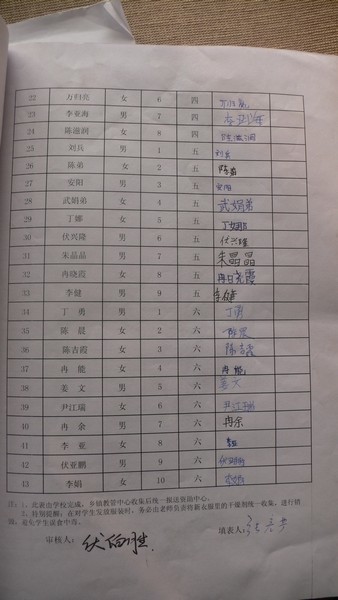 22 万归亮 女 6 四
23 李亚海 男 7 四 李亚海
24 陈滋润 女 8 四 陈滋润
25 刘兵 男 1 五 刘兵
26 陈弟 女 2 五 陈弟
27 安阳 男 3 五 安阳
28 武娟弟 女 4 五 武娟弟
29 丁娜 女 5 五 丁娜
30 伏兴隆 男 6 五 伏兴隆
31 朱晶晶 男 7 五 朱晶晶
32 冉晓霞 女 8 五 冉晓霞
33 李健 男 9 五 李健
34 丁勇 男 1 六 丁勇
35 陈晨 女 2 六 陈晨
36 陈吉霞 女 3 六 陈吉霞
37 冉能 女 4 六 冉能
38 姜文 男 5 六 姜文
39 尹江瑞 女 6 六 尹江瑞
40 冉余 男 7 六 冉余
41 李亚 女 8 六 李亚
42 伏亚鹏 男 9 六 伏亚鹏
43 李娟 女 10 六 李娟
注：1、此表由学校完成，乡镇教管中心收集后统一报送资助中心。
2、特别提醒：在对学生发放服装时，务必由老师负责将新衣服里的干燥剂统一收集、进行销
毁，避免学生误食中毒。
审核人： 填表人：